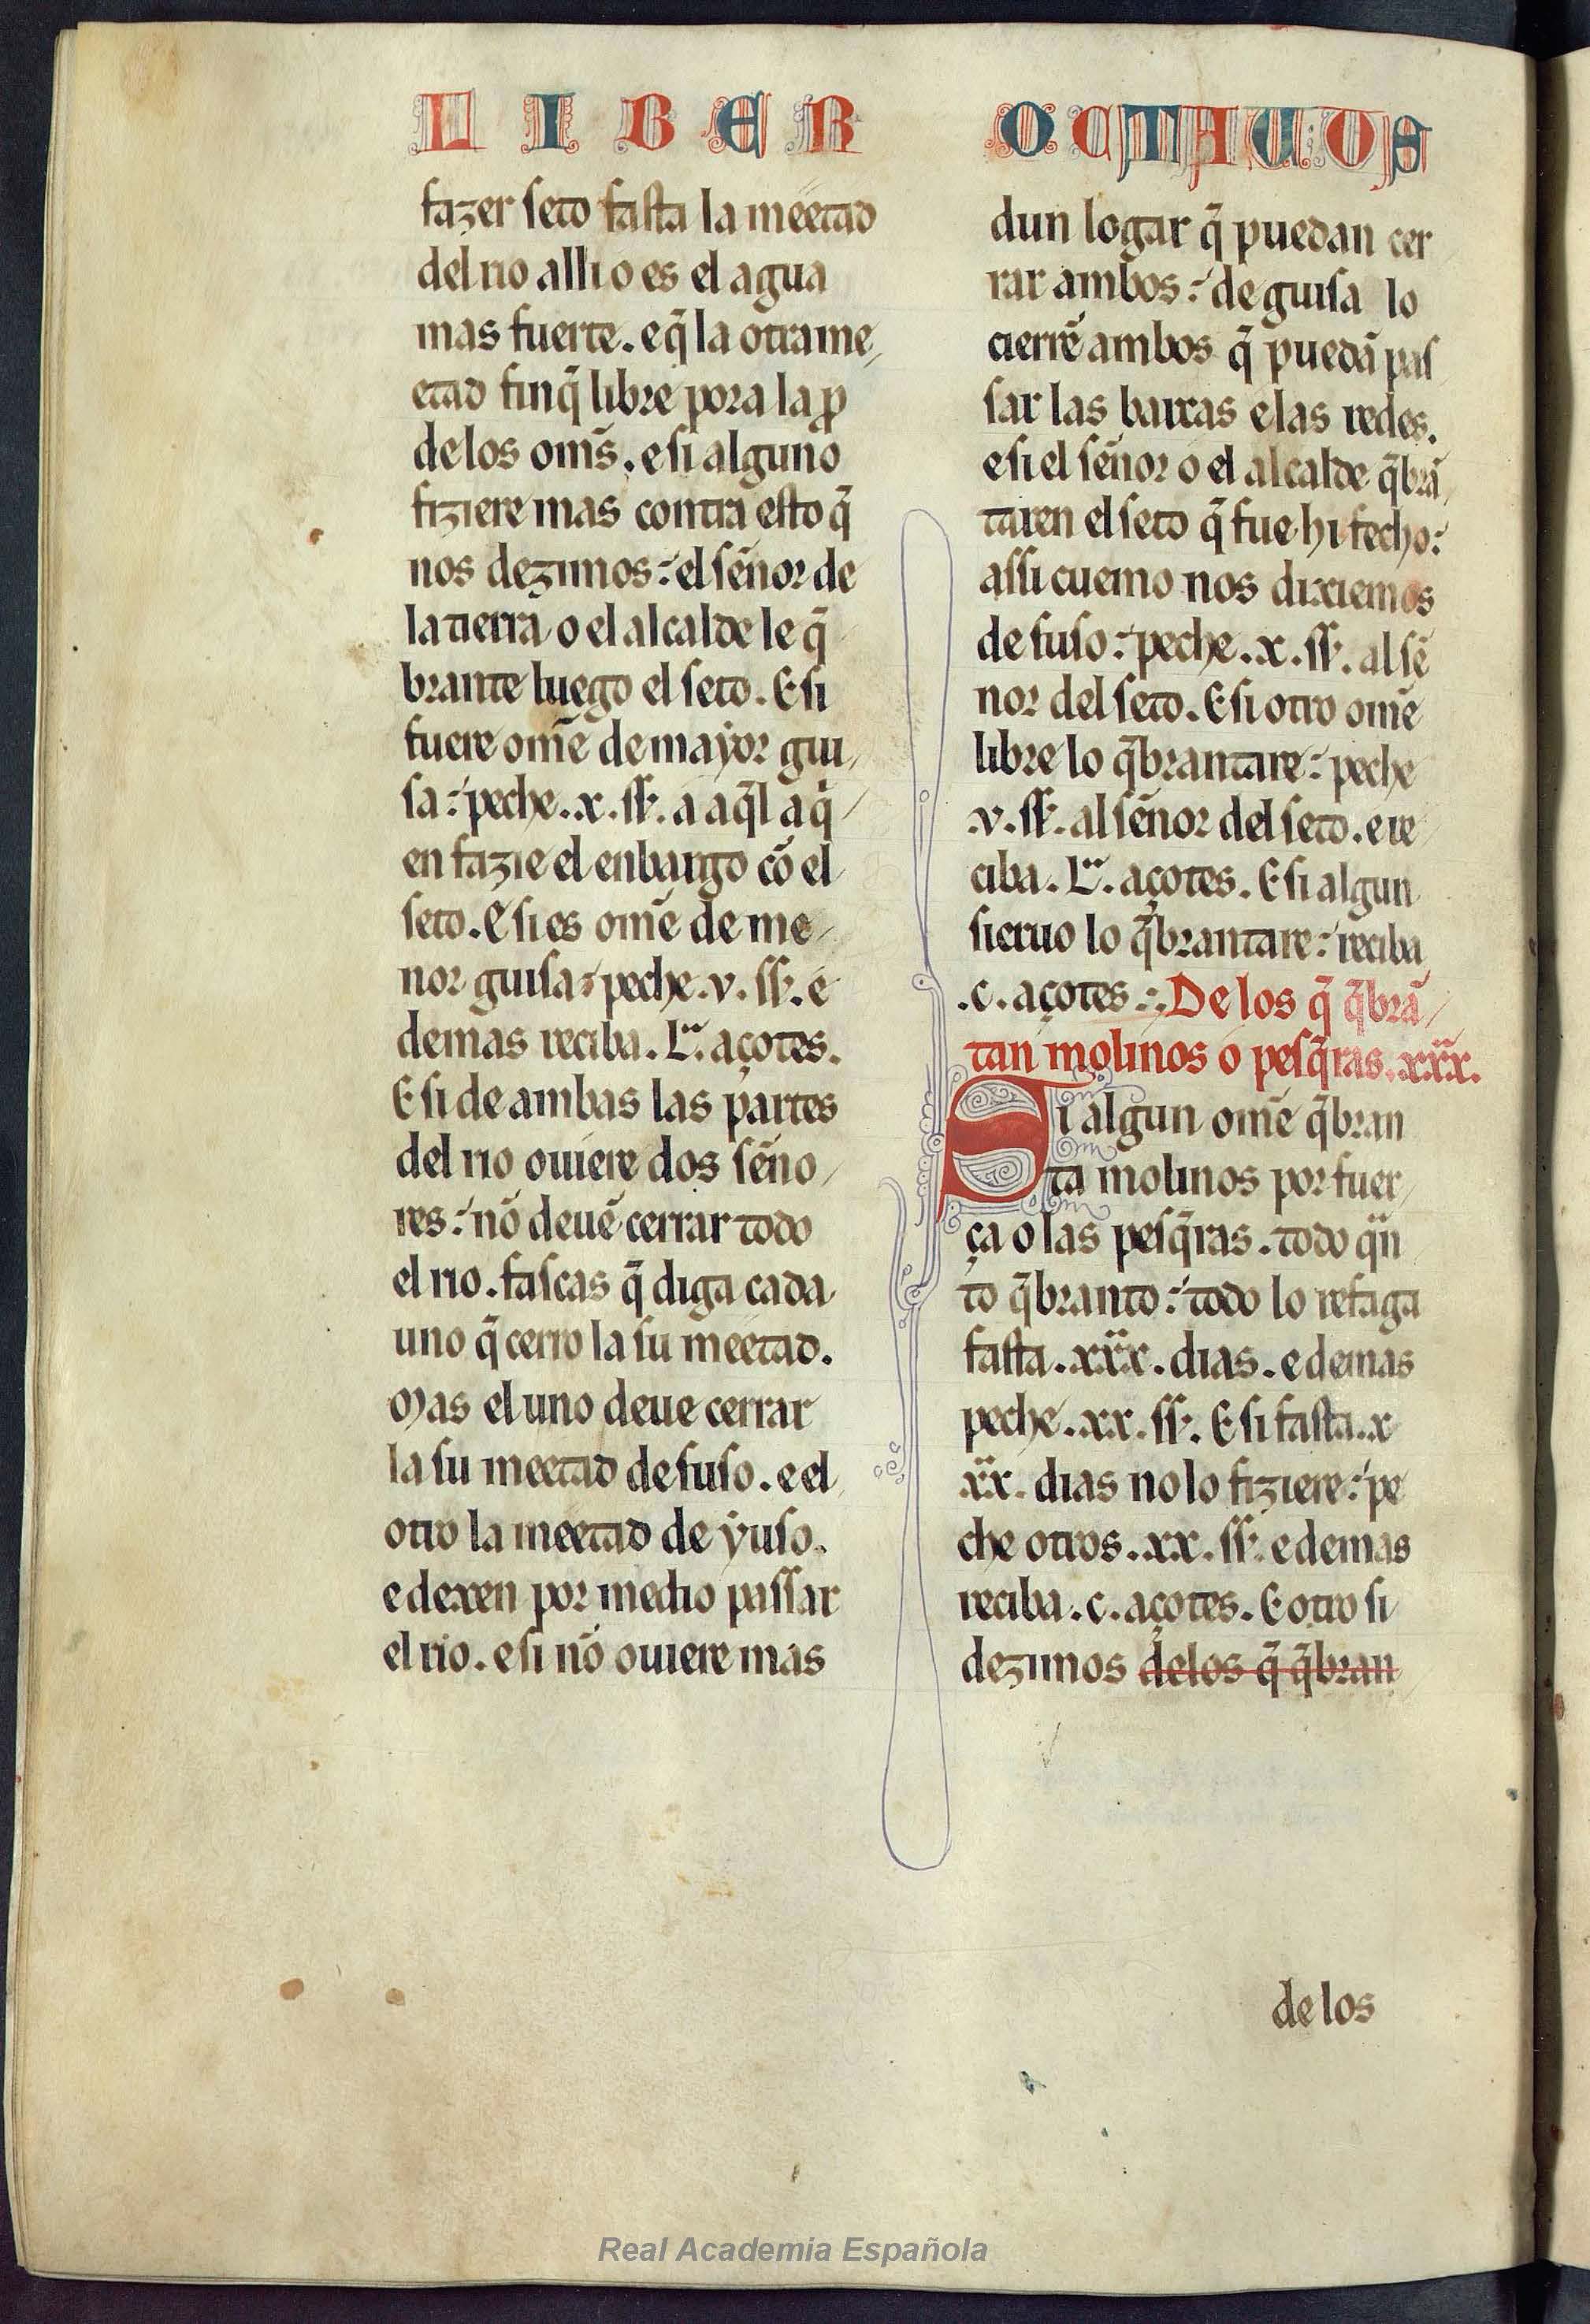 LIBER OCTAUUS
fazer seto fasta la meetad
del rio alli o es el agua
mas fuerte. e q̃ la otra me
etad finq̃ libre pora la ꝓ
delos om̃s. e si alguno
fiziere mas contra esto q̃
nos dezimos: el sẽnor de
la tierra o el alcalde le q̃
brante luego el seto. E si
fuere om̃e de mayor gui
sa: peche .x. ss. a aq̃l a q̇
en fazie el enbargo cõ el
seto. E si es om̃e de me
nor guisa: peche .v. ss. e
demas reciba .L. açotes.
E si de ambas las partes
del rio ouiere dos sẽno
res: nõ deuẽ cerrar todo
el rio. fascas q̃ diga cada
uno q̃ cerro la su meetad.
Mas el uno deue cerrar
la su meetad de suso. e el
otro la meetad de yuso.
e dexen por medio passar
el rio. e si nõ ouiere mas
dun logar q̃ puedan cer
rar ambos: de guisa lo
cierrẽ ambos q̃ puedã pas
sar las barcas e las redes.
e si el sẽnor o el alcalde q̃brã
taren el seto q̃ fue hi fecho:
assi cuemo nos dixiemos
de suso: peche .x. ss. al sẽ
nor del seto. E si otro om̃e
libre lo q̃brantare: peche
.v. ss. al sẽnor del seto. e re
ciba .L. açotes. E si algun
sieruo lo q̃brantare: reciba
.c. açotes: De los q̃ q̃brã
tan molinos o pesq̃ras .xxx.
Si algun om̃e q̃bran
ta molinos por fuer
ça o las pesq̃ras. todo qũ
to q̃branto: todo lo refaga
fasta .xxx. dias. e demas
peche .xx. ss. E si fasta .x
xx. dias no lo fiziere: pe
che otros .xx. ss. e demas
reciba .c. açotes. E otro si
dezimos delos q̃ q̃bran
de los
Real Academia Española